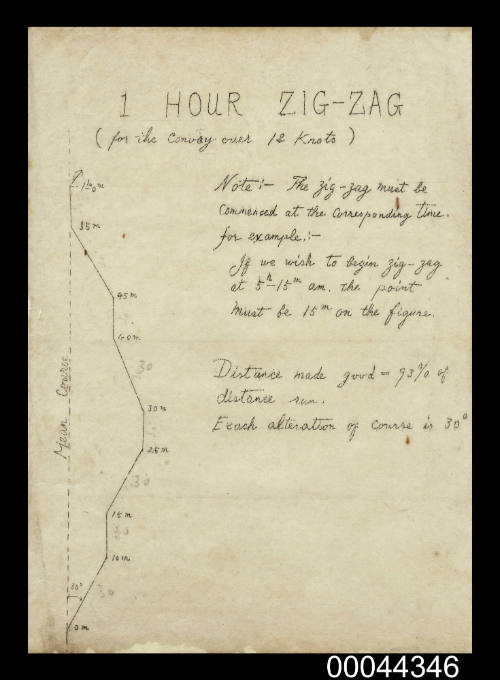 1 HOUR ZIG-ZAG
( for the Convoy over 12 Knots )
1h 0m
55 m
45 m
40 m
30
30 m
25 m
30
15 m
30
10 m
30°
30
0 m
Mean Course
Note :- The zig-zag must be
commenced at the corresponding time.
for example :-
If we wish to begin zig-zag
at 5h-15m am. the point
must be 15m on the figure.
Distance made good = 93% of
distance run.
Eeach alteration of course is 30°
00044346